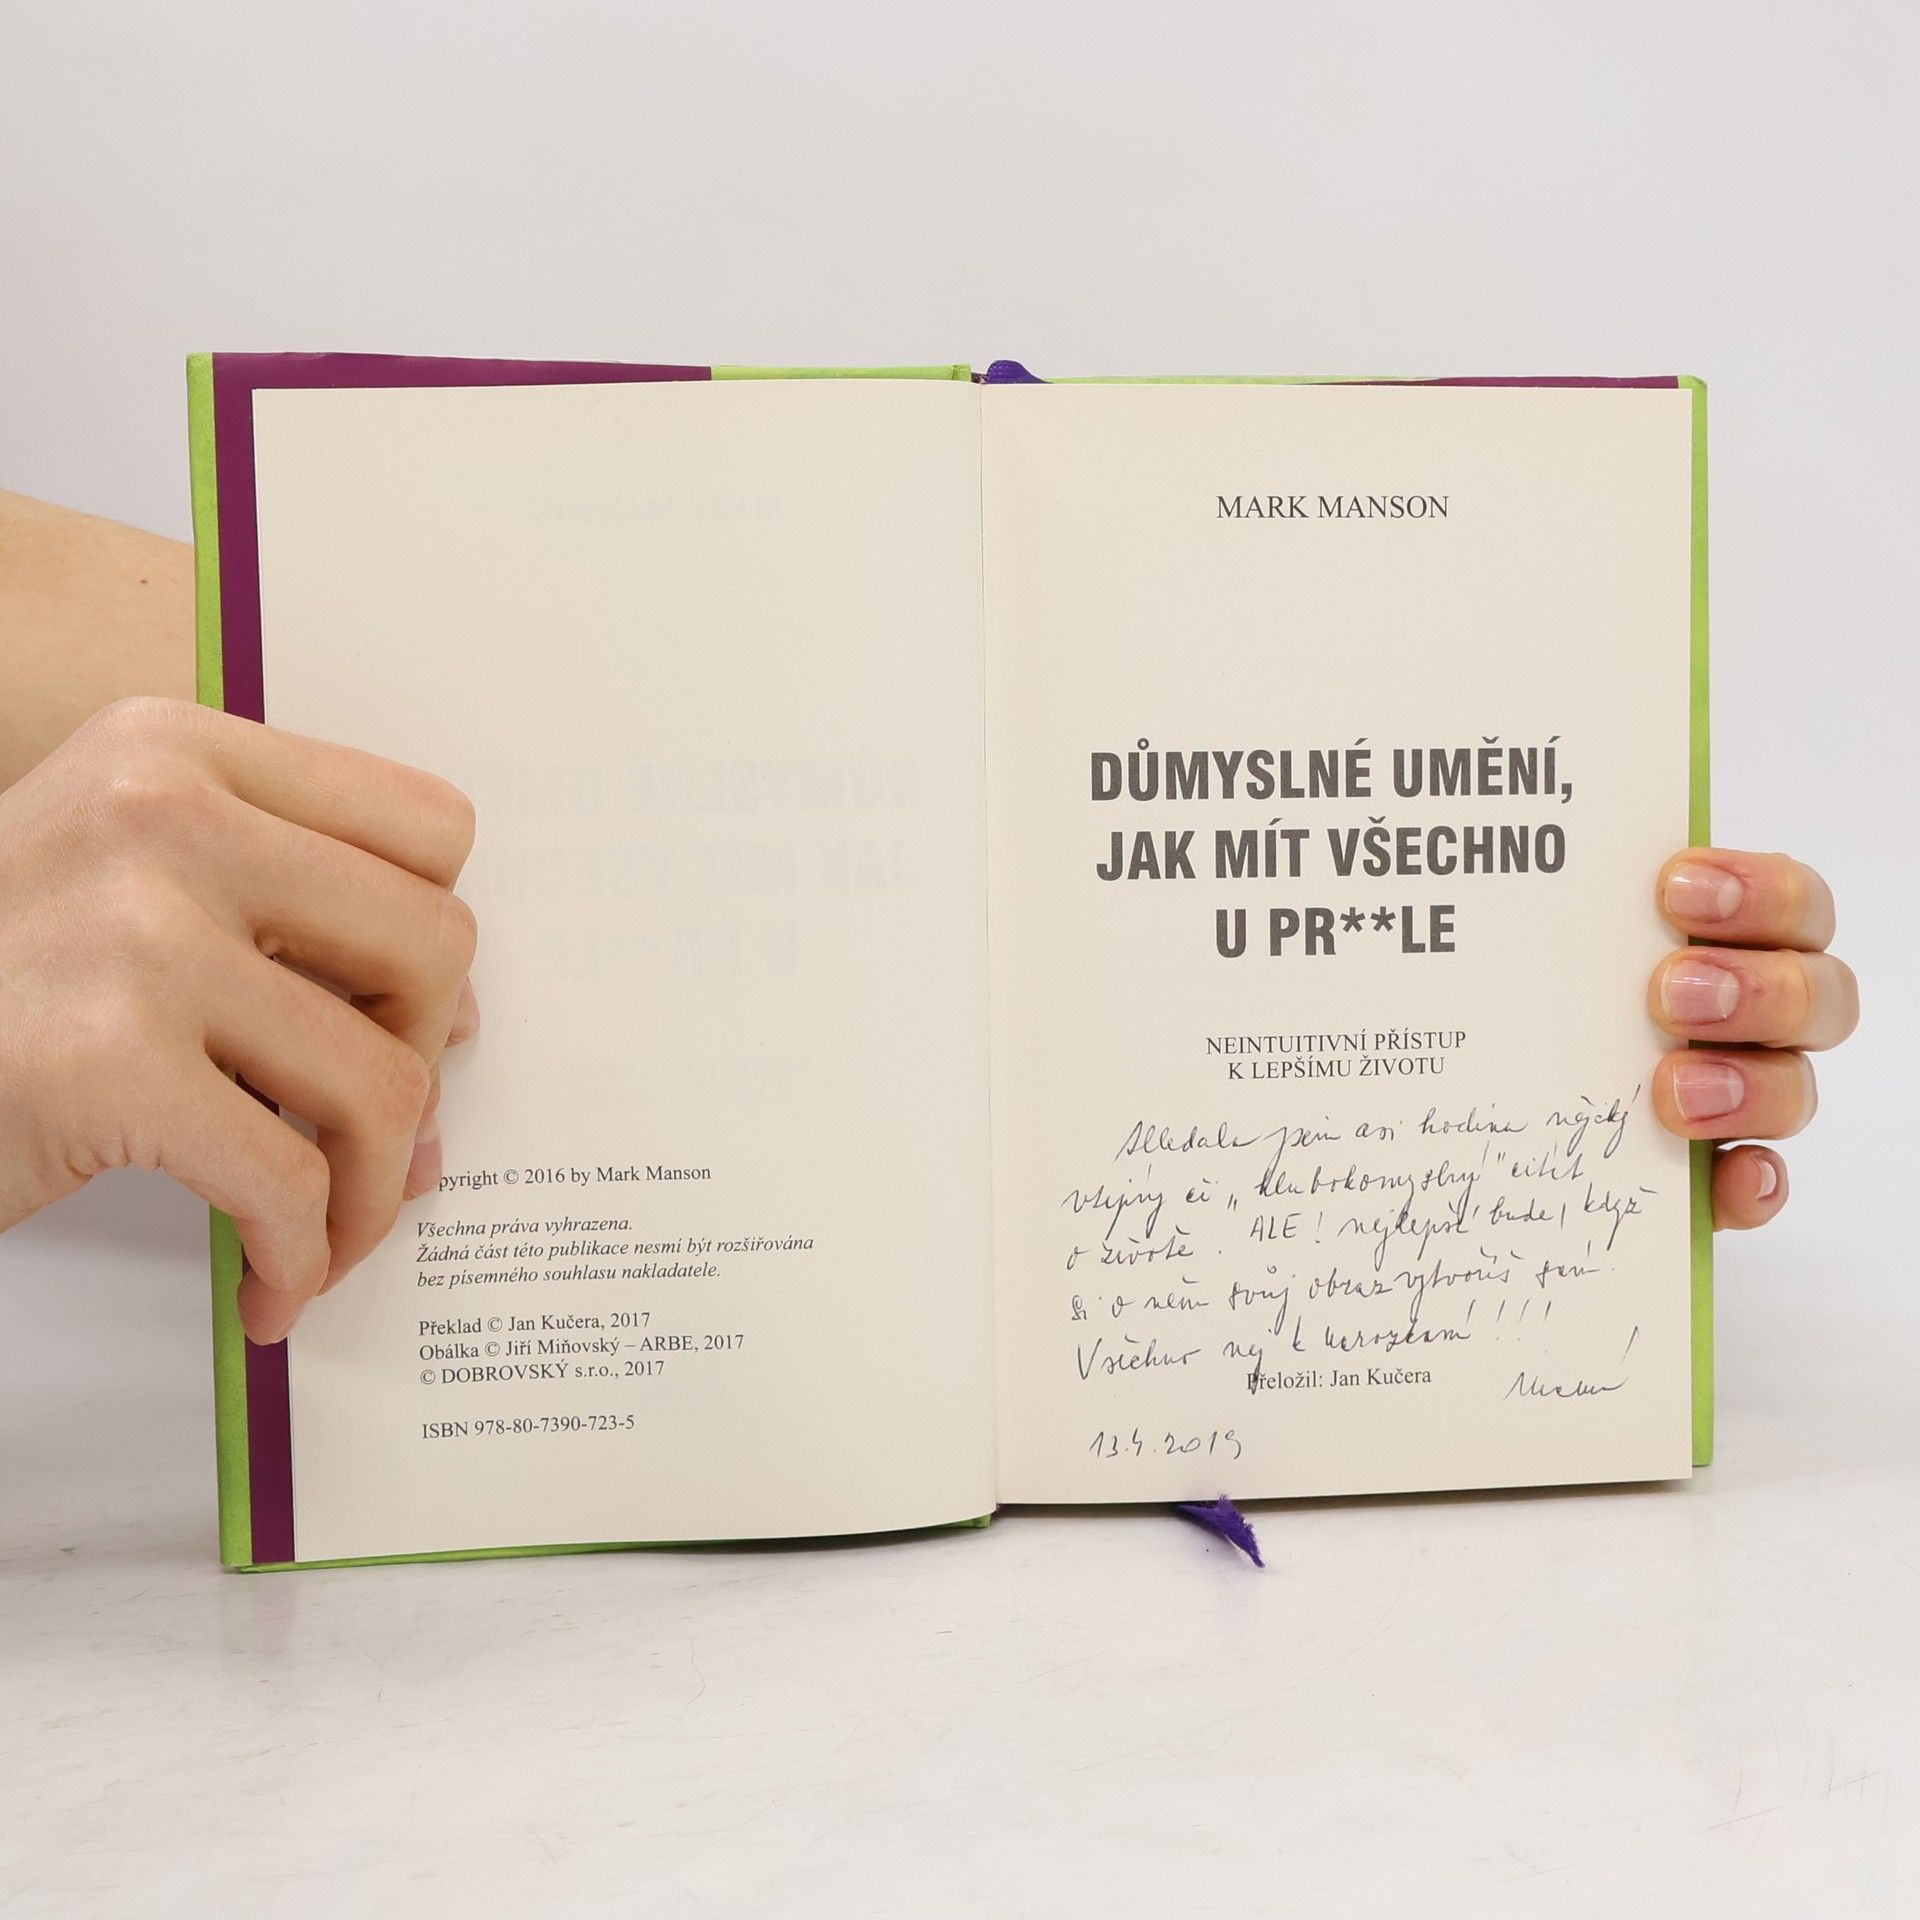 pyright © 2016 by Mark Manson
Všechna práva vyhrazena.
Žádná část této publikace nesmí být rozšiřována
bez písemného souhlasu nakladatele.
Překlad © Jan Kučera, 2017
Obálka © Jiří Miňovský – ARBE, 2017
© DOBROVSKÝ s.r.o., 2017
ISBN 978-80-7390-723-5
MARK MANSON
DŮMYSLNÉ UMĚNÍ,
JAK MÍT VŠECHNO
U PR**LE
NEINTUITIVNÍ PŘÍSTUP
K LEPŠÍMU ŽIVOTU
Hledala jsem asi hodinu nějaký
vtipný či „hlubokomyslný" citát
o životě. ALE! nejlepší bude, když
si o něm svůj obraz vytvoříš sám.
Všechno nej k narozkám!!!!
Přeložil: Jan Kučera
13.4.2019